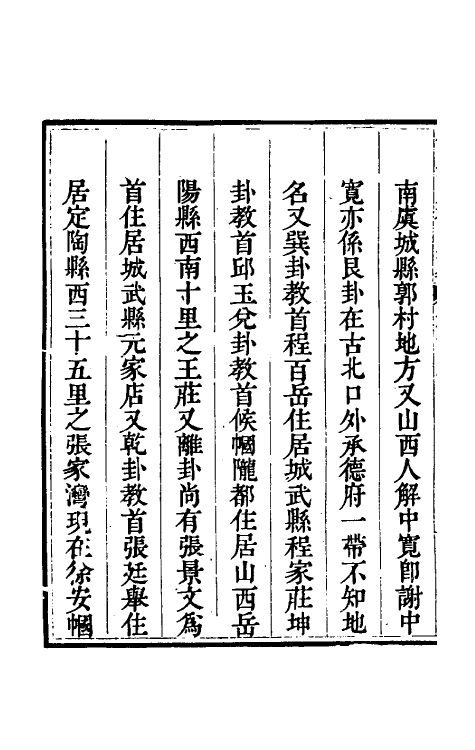 南虞城縣郭村地方又山西人解中寬卽謝中
寬亦係艮卦在古北口外承德府一帶不知地
名又巽卦教首程百岳住居城武縣程家莊坤
卦教首邱玉兌卦教首侯幗隴都住居山西岳
陽縣西南十里之王莊又離卦尚有張景文爲
首住居城武縣元家店又乾卦教首張廷舉住
居定陶縣西三十五里之張家灣現在徐安幗